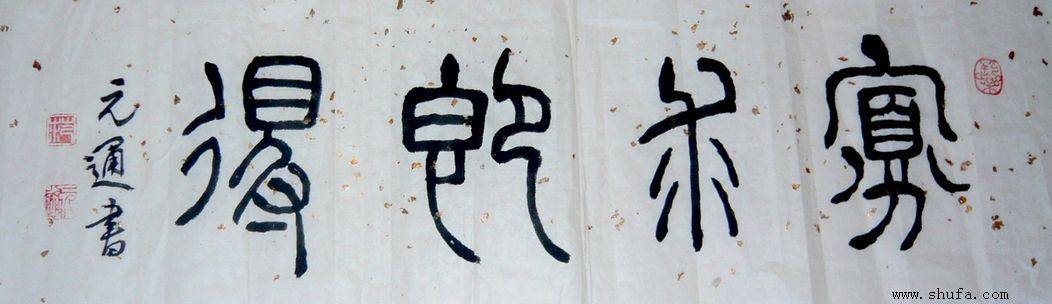 寡求即得
元通書
www.shufa.com